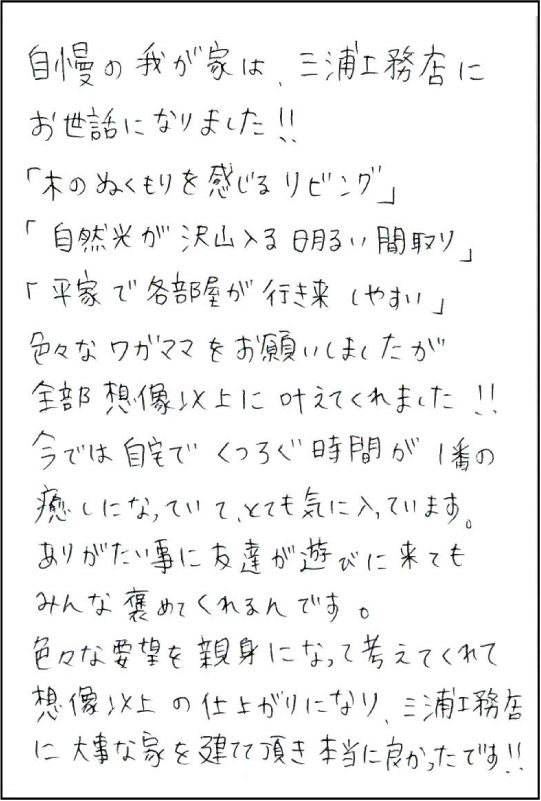 自慢の我が家は、三浦工務店に
お世話になりました!!
「木のぬくもりを感じるリビング」
「自然光が沢山入る明るい間取り」
「平家で各部屋が行き来しやすい」
色々なワガママをお願いしましたが
全部想像以上に叶えてくれました!!
今では自宅でくつろぐ時間が1番の
癒しになっていて、とても気に入っています。
ありがたい事に友達が遊びに来ても
みんな褒めてくれるんです。
色々な要望を親身になって考えてくれて
想像以上の仕上がりになり、三浦工務店
に大事な家を建てて頂き本当に良かったです!!